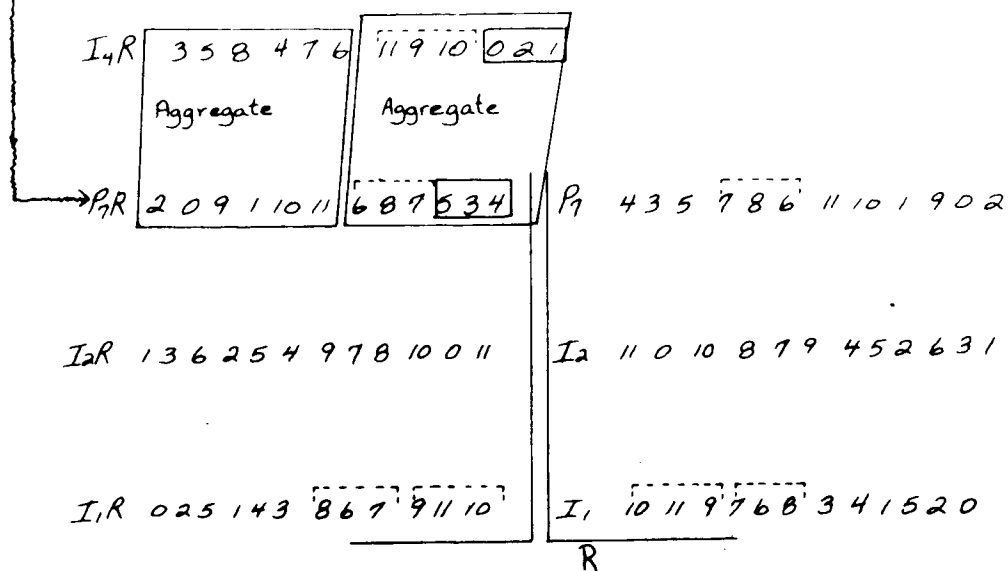 I₄R 3 5 8 4 7 6 11 9 10 0 2 1
Aggregate Aggregate
P₇R 2 0 9 1 10 11 6 8 7 5 3 4 P₇ 4 3 5 7 8 6 11 10 1 9 0 2
I₂R 1 3 6 2 5 4 9 7 8 10 0 11 I₂ 11 0 10 8 7 9 4 5 2 6 3 1
I₁R 0 2 5 1 4 3 8 6 7 9 11 10 I₁ 10 11 9 7 6 8 3 4 1 5 2 0
R